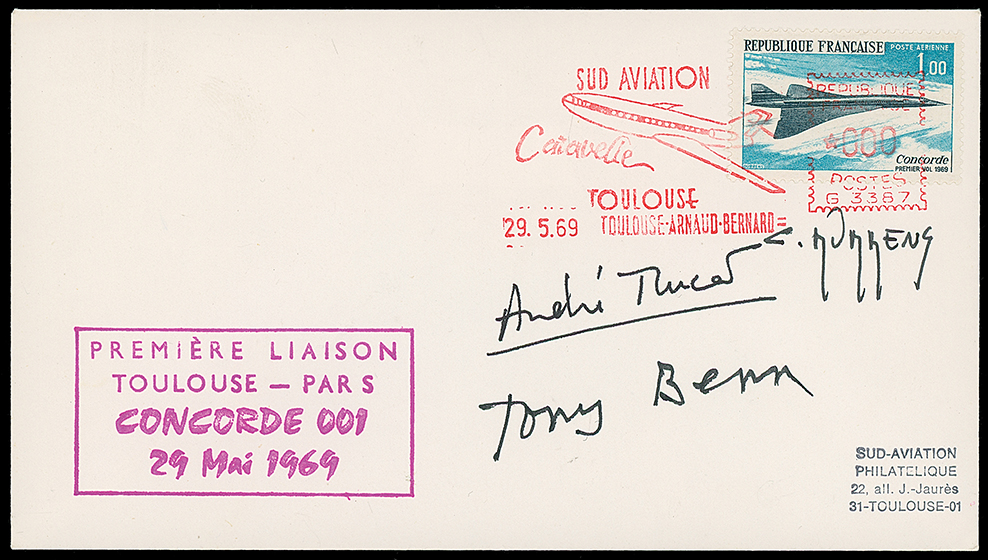 REPUBLIQUE FRANÇAISE POSTE AERIENNE
1,00
SUD AVIATION
Caravelle
REPUBLIQUE
000
Concorde
PREMIER VOL 1969
POSTES
G 3387
TOULOUSE
29.5.69 TOULOUSE-ARNAUD-BERNARD
C. DURRENS
André Turcat
Tony Benn
PREMIÈRE LIAISON
TOULOUSE — PAR S
CONCORDE 001
29 Mai 1969
SUD-AVIATION
PHILATELIQUE
22, all. J.-Jaurès
31-TOULOUSE-01